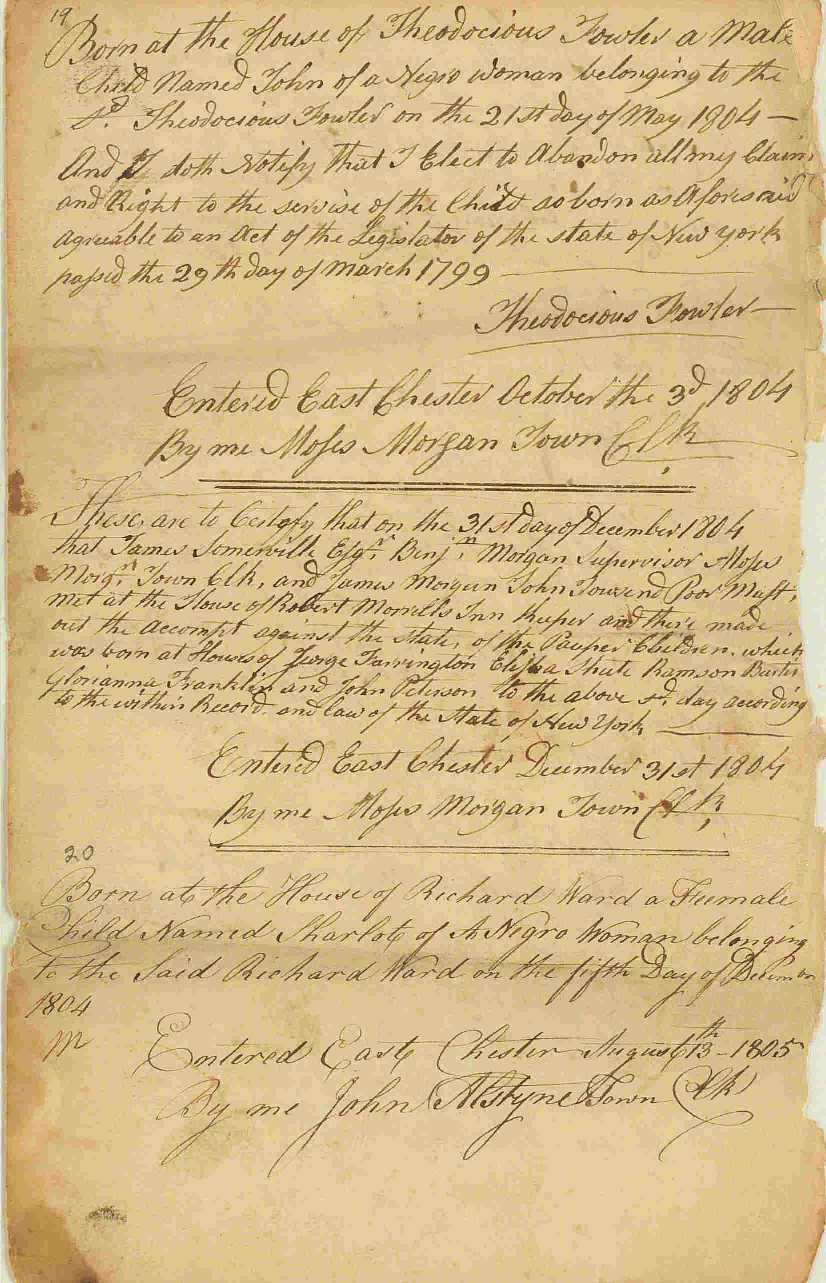 19
Born at the House of Theodocious Fowler a Male
Child Named John of a Negro woman belonging to the
sd. Theodocious Fowler on the 21st day of May 1804 —
And I doth Notify that I Elect to Abandon all my Claim
and Right to the servise of the Child so born as Aforesaid
agreable to an Act of the Legislator of the state of New york
passed the 29th day of march 1799 —
Theodocious Fowler —
Entered East Chester October the 3d 1804
By me Moses Morgan Town Clk
These are to Certefy that on the 31st day of December 1804
that James Somerville Esqr. Benjn. Morgan Supervisor Moses
Morgn. Town Clk, and James Morgan John Tousend Poor Mastr.
met at the House of Robert Morrells Inn keeper and there made
out the Accompt against the state, of the Pauper Children which
was born at Houses of George Farrington Elisha Shute Ramson Burtis
Glorianna Franklin and John Peterson to the above sd. day according
to the within Record. and law of the State of New York —
Entered East Chester December 31st 1804
By me Moses Morgan Town Clk,
20
Born at the House of Richard Ward a Feemale
Child Named Sharlot of A Negro Woman belonging
to the Said Richard Ward on the fifth Day of
1804
m
Entered East Chester August 13th - 1805
By me John Alstyne Town Clk